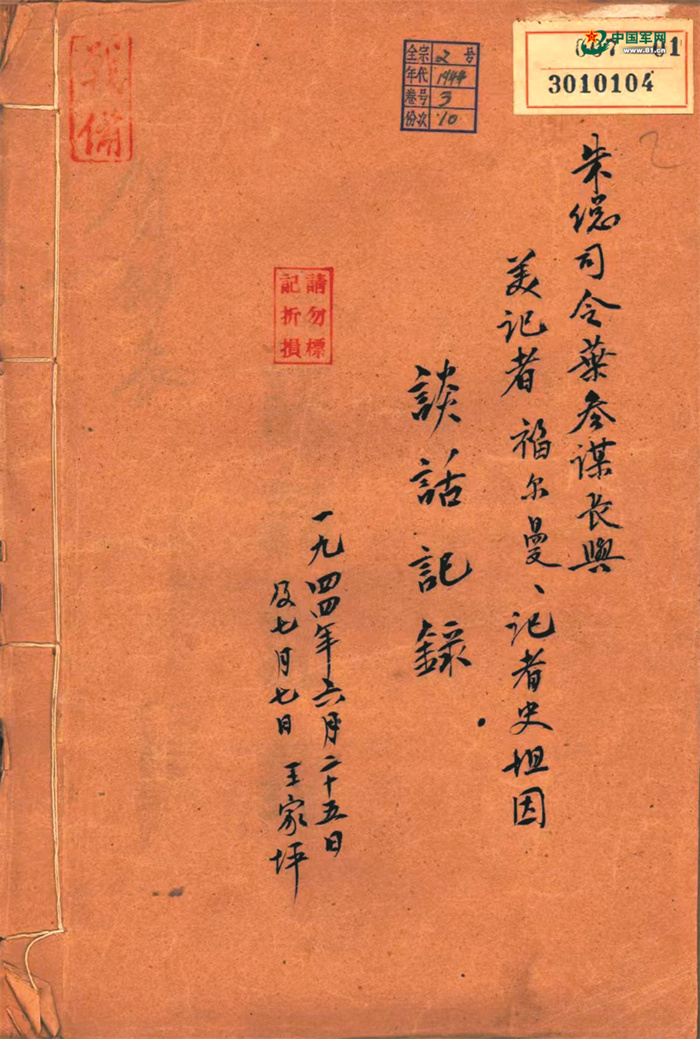 戰備
全宗 2 号
年代 1944
卷号 3
份次 10
中国军网
www.81.cn
01
3010104
2
朱總司令葉參谋長與
美记者福尔曼、记者史坦因
談話記錄
一九四四年六月二十五日
及七月七日 王家坪
請勿標
記折損